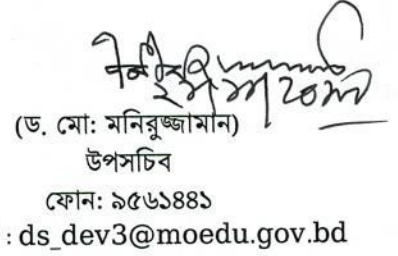 (ড. মো: মনিরুজ্জামান)
উপসচিব
ফোন: ৯৫৬১৪৪১
: ds_dev3@moedu.gov.bd